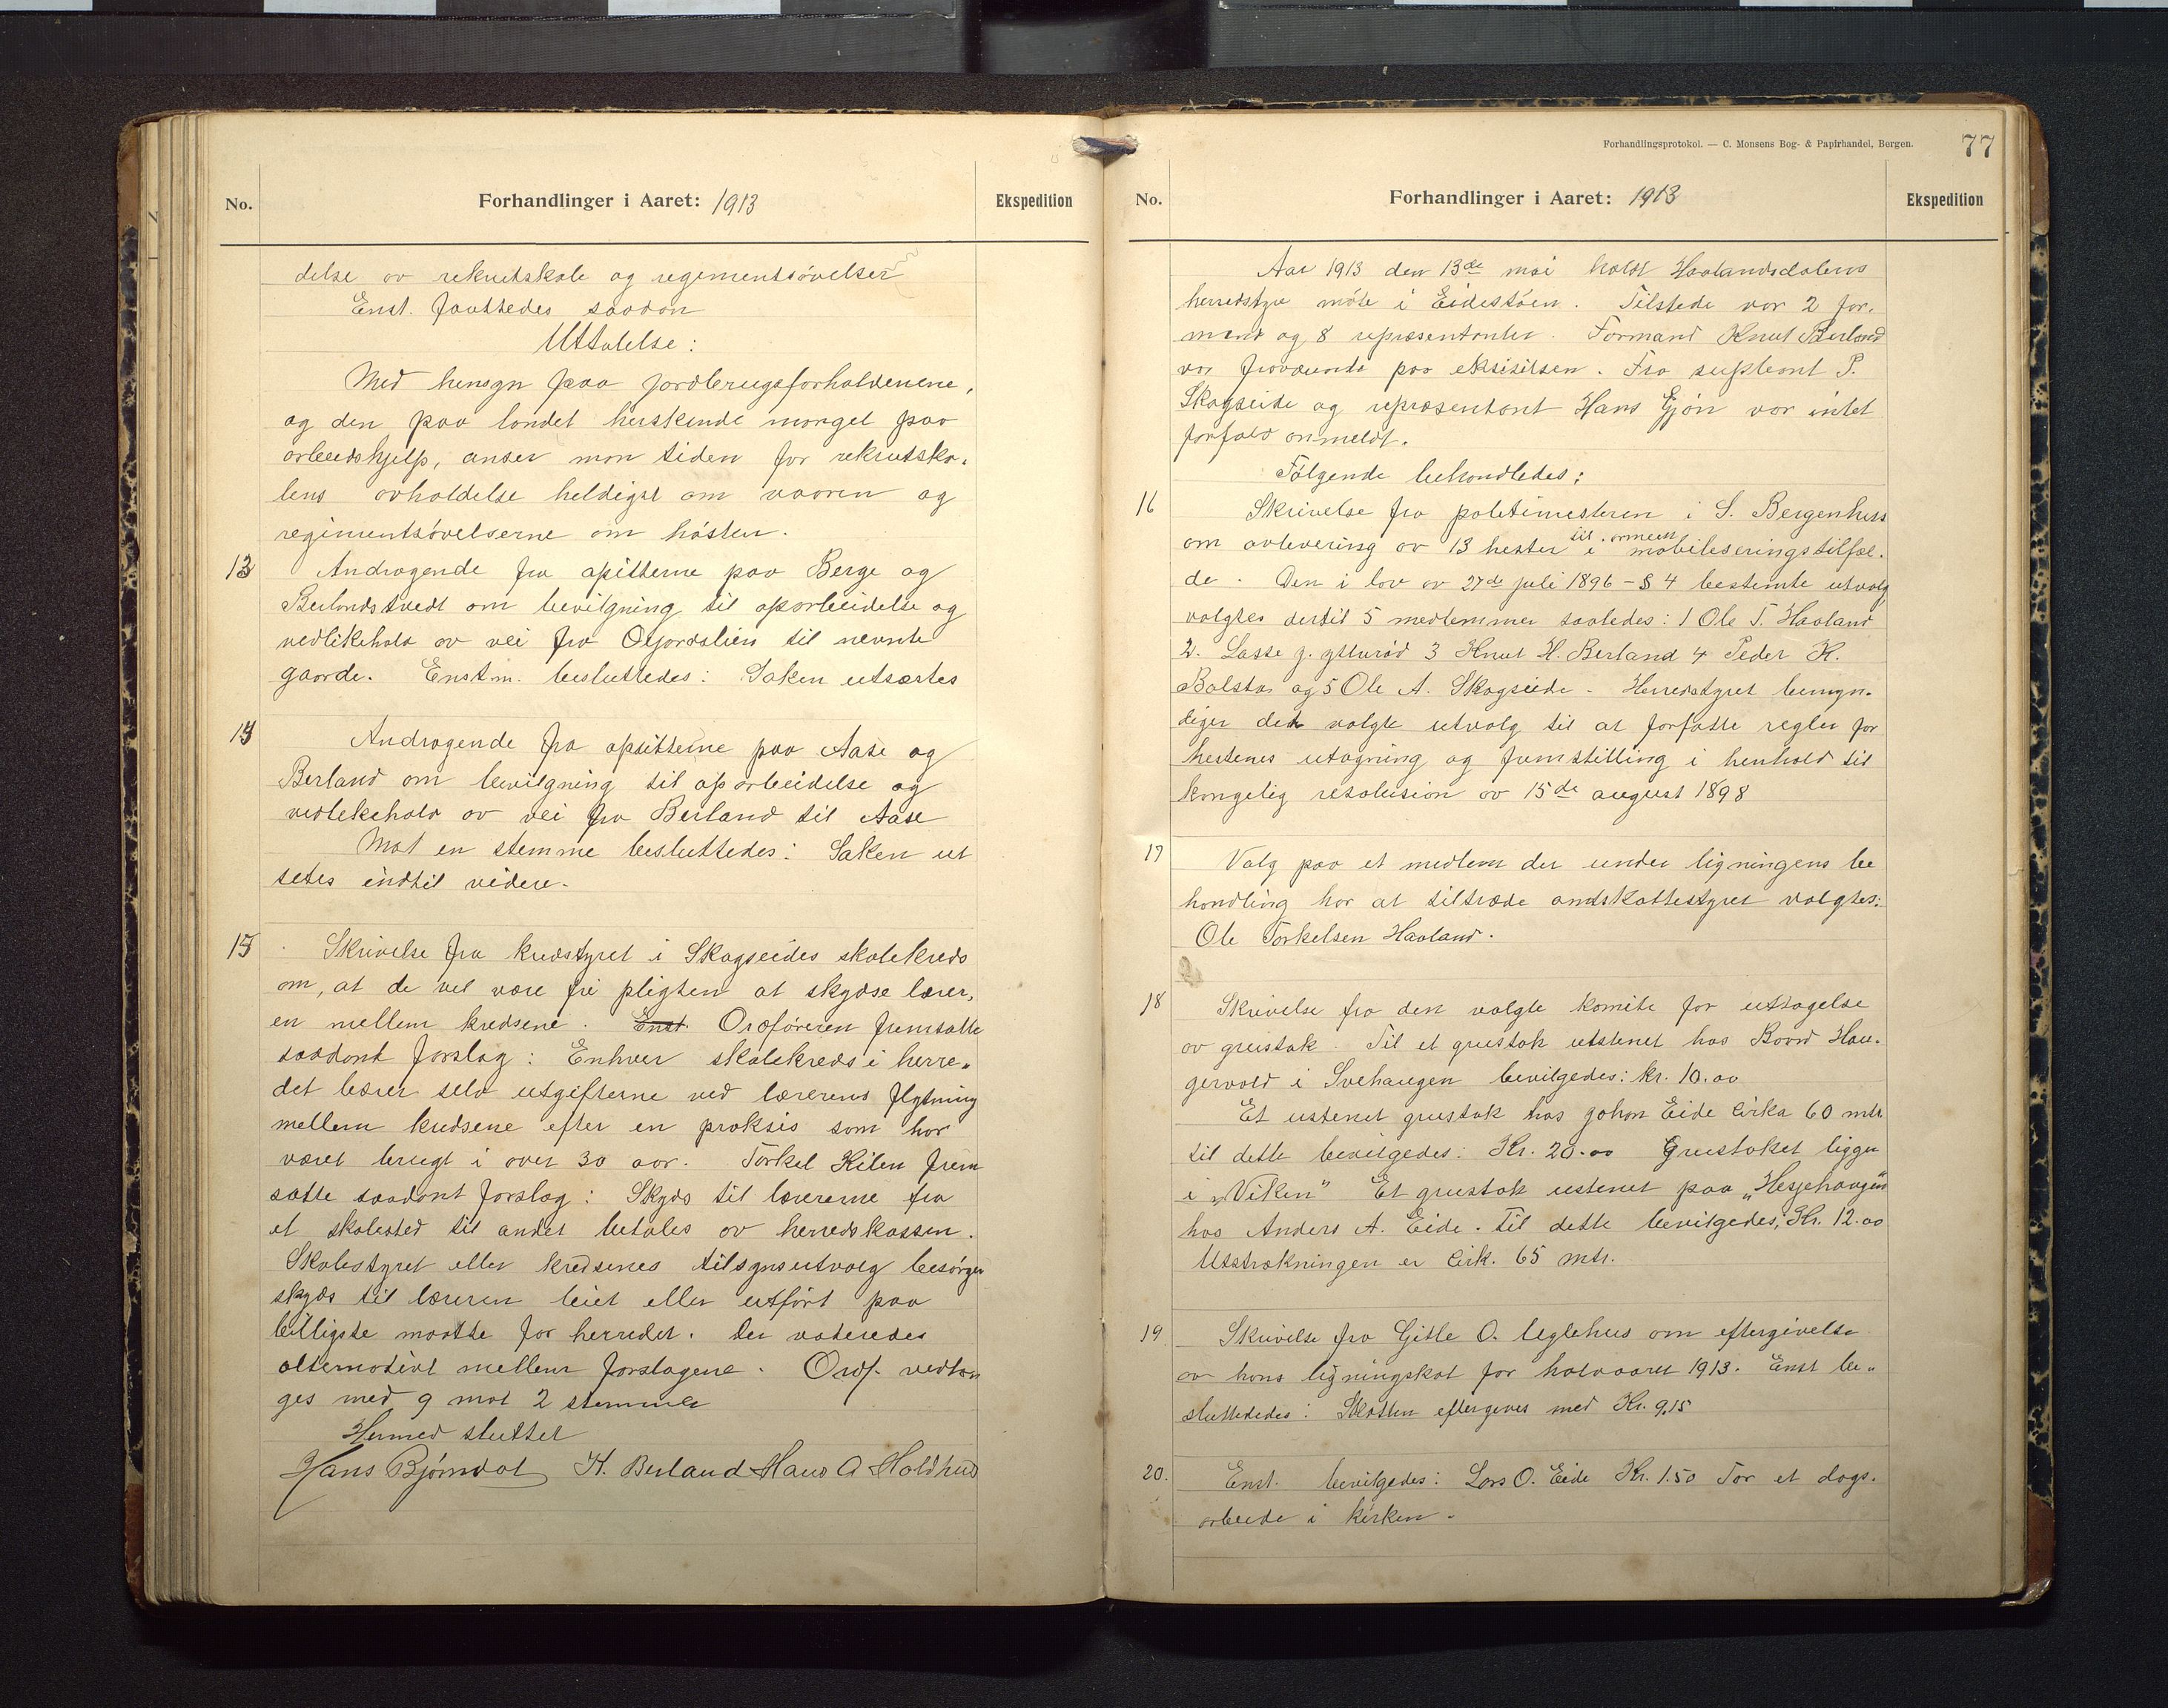 No.
Forhandlinger i Aaret: 1913
Ekspedition
delse av rekrutskole og regementsövelser
Enst. fattedes saadan
Uttalelse:
Med hensyn paa jordbrugsforholdenene,
og den paa landet herskende mangel paa
arbeidshjelp, anser man tiden for rekrutsko-
lens avholdelse heldigst om vaaren og
regimentsövelserne om hösten.
13 Andragende fra opsitterne paa Berge og
Berlandstvedt om bevilgning til oparbeidelse og
vedlikehold av vei fra Ofjordslien til nevnte
gaarde. Enstm. besluttedes: Saken utsættes
14 Andragende fra opsitterne paa Aase og
Berland om bevilgning til oparbeidelse og
vedlekehold av vei fra Berland til Aase
Mot en stemme besluttedes: Saken ut
setes indtil videre.
15 Skrivelse fra kredstyret i Skogseides skolekreds
om, at de vil være fri pligten at skydse lærer,
en mellem kredsene. Enst. Ordföreren fremsatte
saadant forslag: Enhver skolekreds i herre-
det bærer selv utgifterne ved lærerens flytning
mellem kredsene efter en praksis som har
været brugt i over 30 aar. Torkel Kilen frem
satte saadant forslag: Skyds til lærerene fra
et skolested til andet betales av herredskassen.
Skolestyret eller kredsenes tilsynsutvalg besörger
skyds til læreren leiet eller utfört paa
billigste maatte for herredet. Der voteredes
alternativt mellem forslagene. Ordf. vedtan
ges med 9 mot 2 stemmer
Hermed sluttet
Hans Björndal K. Berland Hans A Holdhus
Forhandlingsprotokol. — C. Monsens Bog- & Papirhandel, Bergen.
77
No.
Forhandlinger i Aaret: 1913
Ekspedition
Aar 1913 den 13de mai holdt Haalandsdalens
herredstyre möte i Eidestöen. Tilstede var 2 for-
mend og 8 representanter. Formand Knut Berland
var fraværende paa eksisitsen. Fra suplent P.
Skogseide og representant Hans Gjön var intet
forfald anmeldt.
Fölgende behandledes:
16 Skrivelse fra politimesteren i S. Bergenhus
om avlevering av 13 hester til armeen i mobiliseringstilfæl-
de. Den i lov av 27de juli 1896 - § 4 bestemte utvalg
valgtes dertil 5 medlemmer saaledes: 1 Ole T. Haaland
2. Lasse J. Ytteröd 3 Knut H. Berland 4 Peder K.
Bolstad og 5 Ole A. Skogseide. Herredstyret bemyn-
diger det valgte utvalg til at forfatte regler for
hestenes utagning og fremstilling i henhold til
kongelig resolusion av 15de august 1898
17 Valg paa et medlem der under ligningens be
handling har at tiltræde amtskattestyret valgtes:
Ole Torkelsen Haaland.
18 Skrivelse fra den valgte komite for uttagelse
av grustak. Til et grustak utstenet hos Baard Hau-
gervold i Svehaugen bevilgedes: kr. 10.00
Et ustenet grustak hos Johan Eide cirka 60 mtr.
til dette bevilgedes: Kr. 20.00 Grustaket ligger
i „Viken" Et grustak ustenet paa „Hesjehaugen"
hos Anders A. Eide. Til dette bevilgedes, Kr. 12.00
Utstrækningen er cirk. 65 mtr.
19 Skrivelse fra Gitle O. Uglehus om eftergivelse
av hans ligningskat for halvaaret 1913. Enst be-
sluttededes: Skatten eftergives med Kr. 9.15
20. Enst. bevilgedes: Lars O. Eide Kr. 1.50 For et dags-
arbeide i kirken.